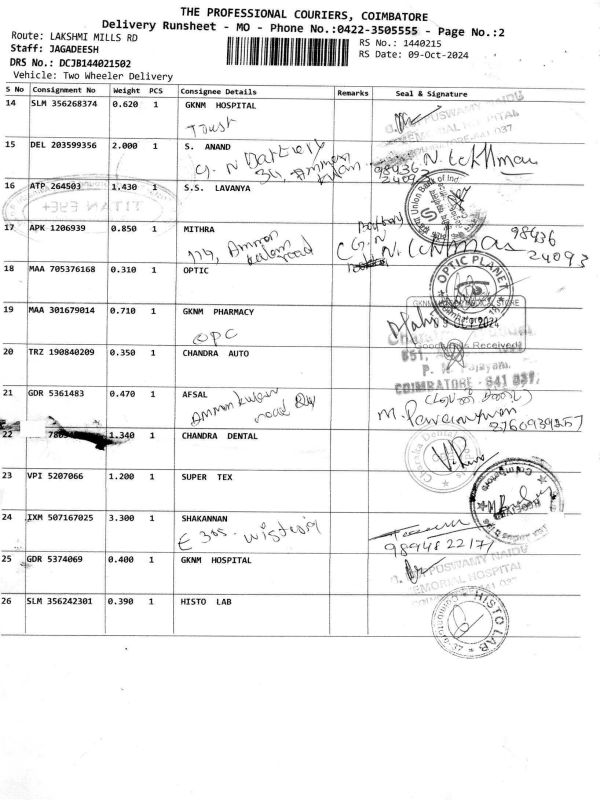 THE PROFESSIONAL COURIERS, COIMBATORE
Delivery Runsheet - MO - Phone No.:0422-3505555 - Page No.:2
Route: LAKSHMI MILLS RD
Staff: JAGADEESH
DRS No.: DCJB144021502
Vehicle: Two Wheeler Delivery
RS No.: 1440215
RS Date: 09-Oct-2024
S No Consignment No Weight PCS Consignee Details Remarks Seal & Signature
14 SLM 356268374 0.620 1 GKNM HOSPITAL
Trust
KUPPUSWAMY NAIDU
MEMORIAL HOSPITAL
15 DEL 203599356 2.000 1 S. ANAND
G. N Battery
34, Amman
kulam
98436
24093
16 ATP 264503 1.430 1 S.S. LAVANYA
Union Bank of Ind
TITAN EYE+
17 APK 1206939 0.850 1 MITHRA
Amman
kulam
road
Battery
G. N
98436
24093
18 MAA 705376168 0.310 1 OPTIC
OPTIC PLANET
19 MAA 301679014 0.710 1 GKNM PHARMACY
OPC
GKNM
MEDICAL STORE
09 OCT 2024
Goods Received
20 TRZ 190840209 0.350 1 CHANDRA AUTO
COIMBATORE - 641 037
21 GDR 5361483 0.470 1 AFSAL
Amman kulam
road
22 1.340 1 CHANDRA DENTAL
23 VPI 5207066 1.200 1 SUPER TEX
24 IXM 507167025 3.300 1 SHAKANNAN
E 305 - wisteria
25 GDR 5374069 0.400 1 GKNM HOSPITAL
KUPPUSWAMY NAIDU
MEMORIAL HOSPITAL
26 SLM 356242301 0.390 1 HISTO LAB
HISTO LAB